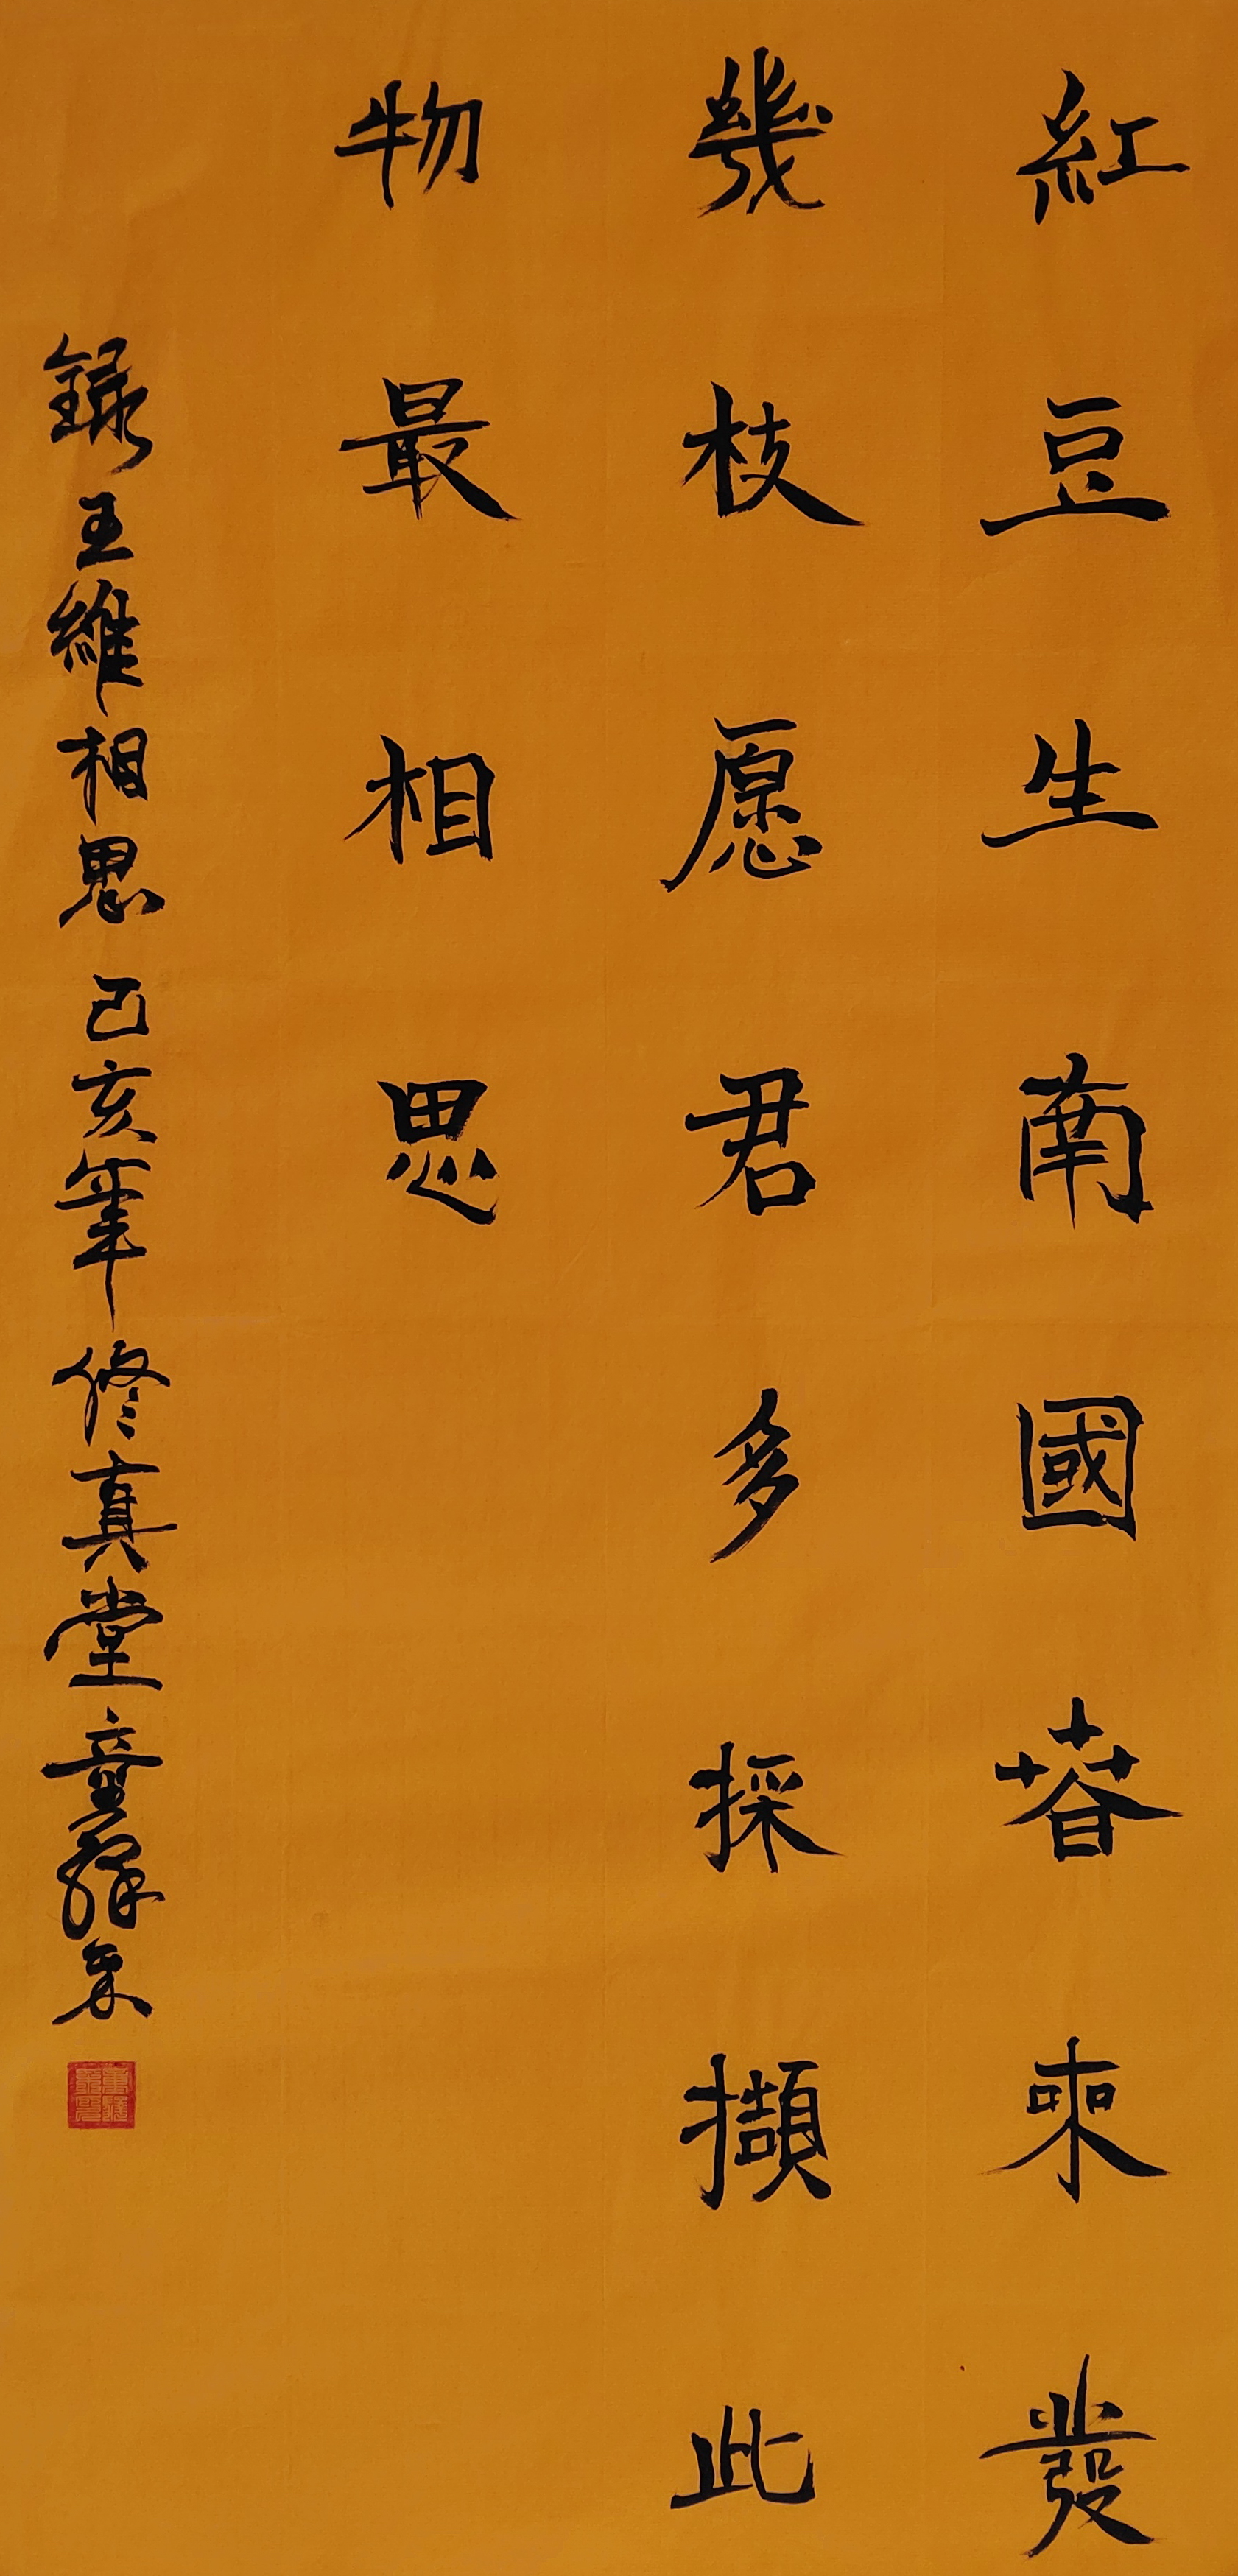 紅豆生南國春來發
幾枝愿君多採擷此
物最相思
録王維相思己亥年修真堂童